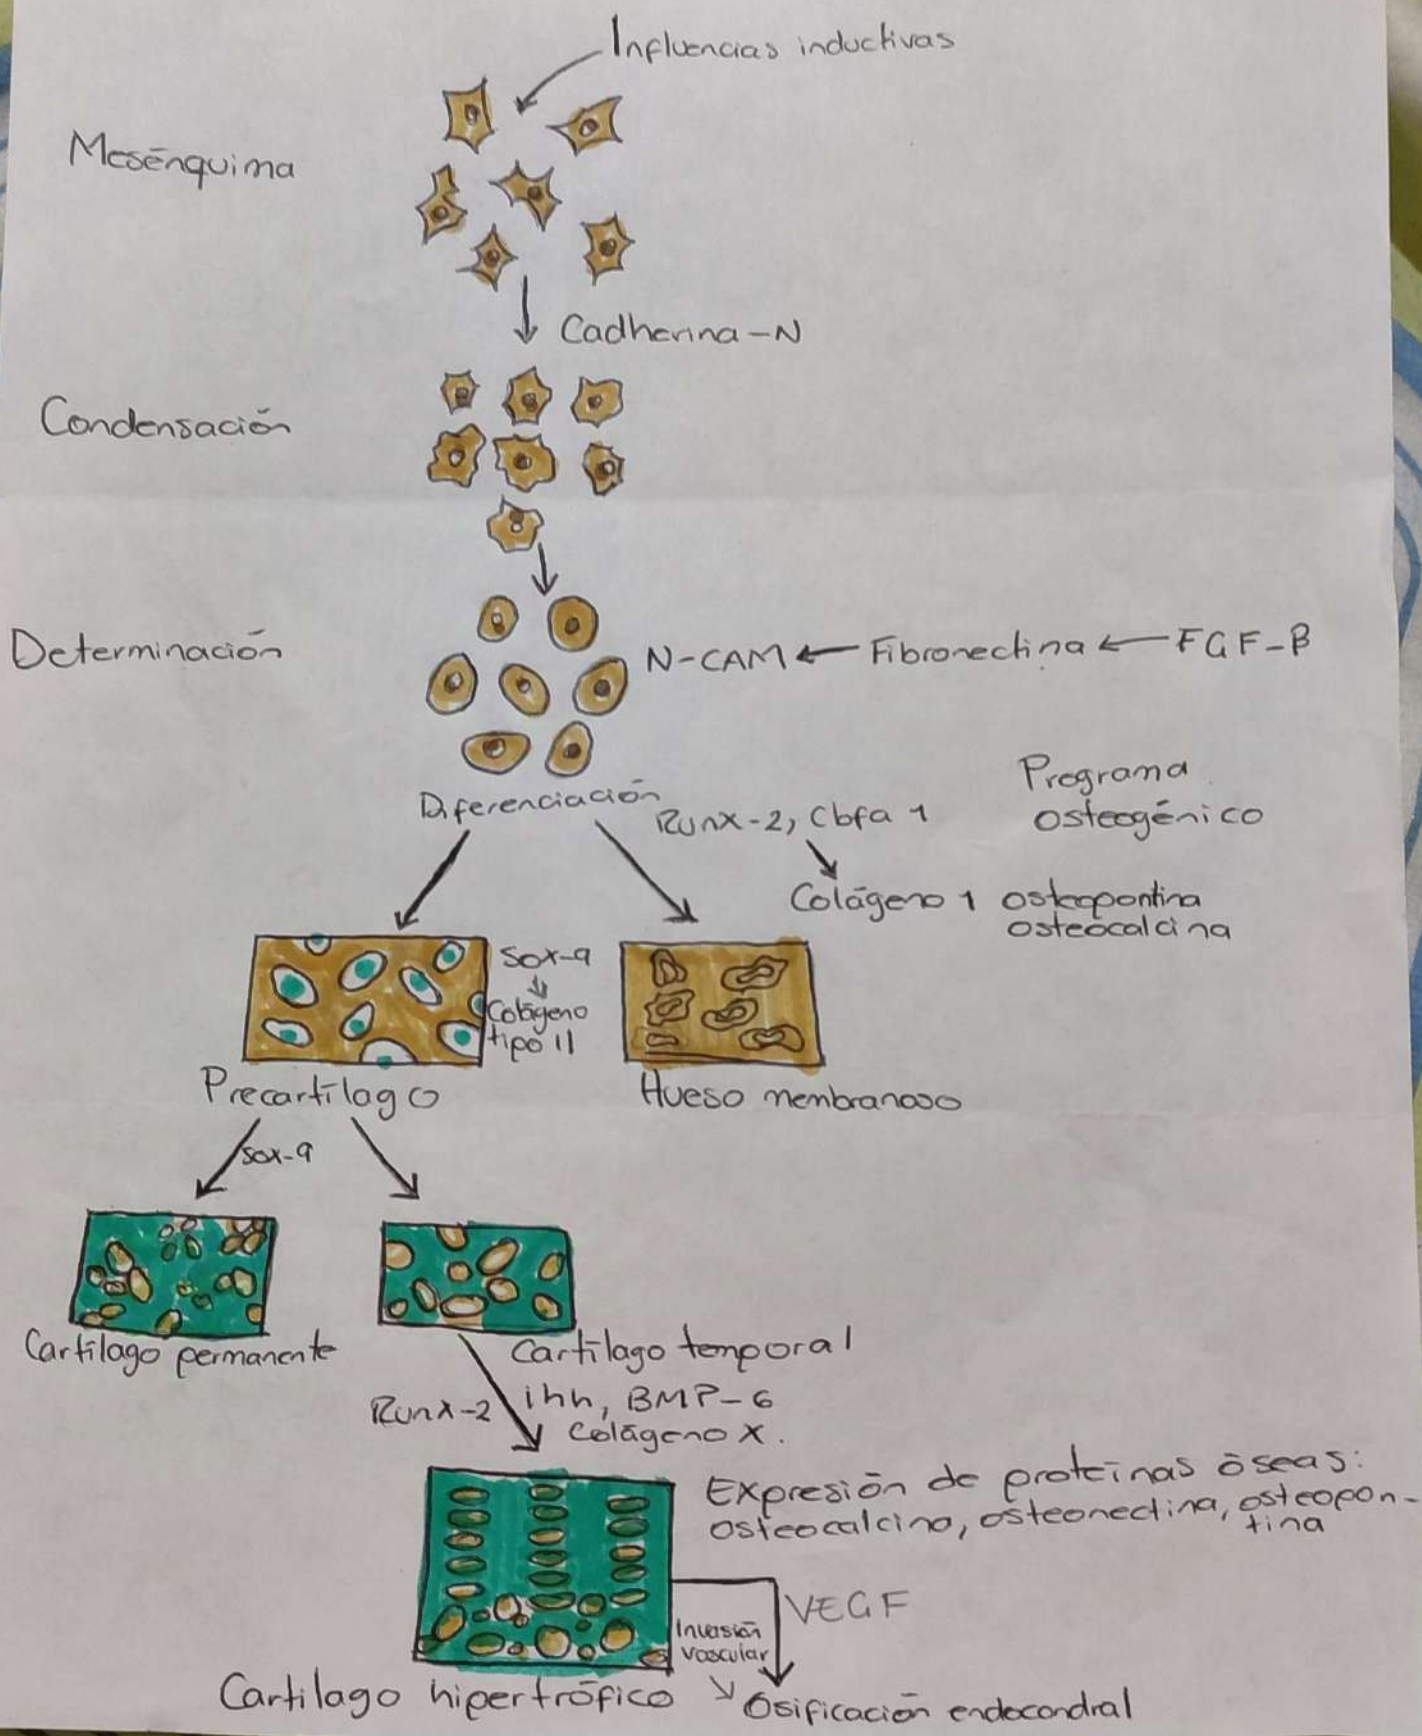 Influencias inductivas
Mesénquima
Cadherina-N
Condensación
Determinación
N-CAM ← Fibronectina ← FGF-β
Diferenciación
Runx-2, Cbfa 1
Programa
osteogénico
Colágeno 1 osteopontina
osteocalcina
Sox-9
Colágeno
tipo II
Precartílago
Hueso membranoso
Sox-9
Cartílago permanente
Cartílago temporal
Runx-2
ihh, BMP-6
Colágeno X.
Expresión de proteínas óseas:
osteocalcina, osteonectina, osteopon-
tina
VEGF
Invasión
vascular
Cartilago hipertrófico
Osificación endocondral